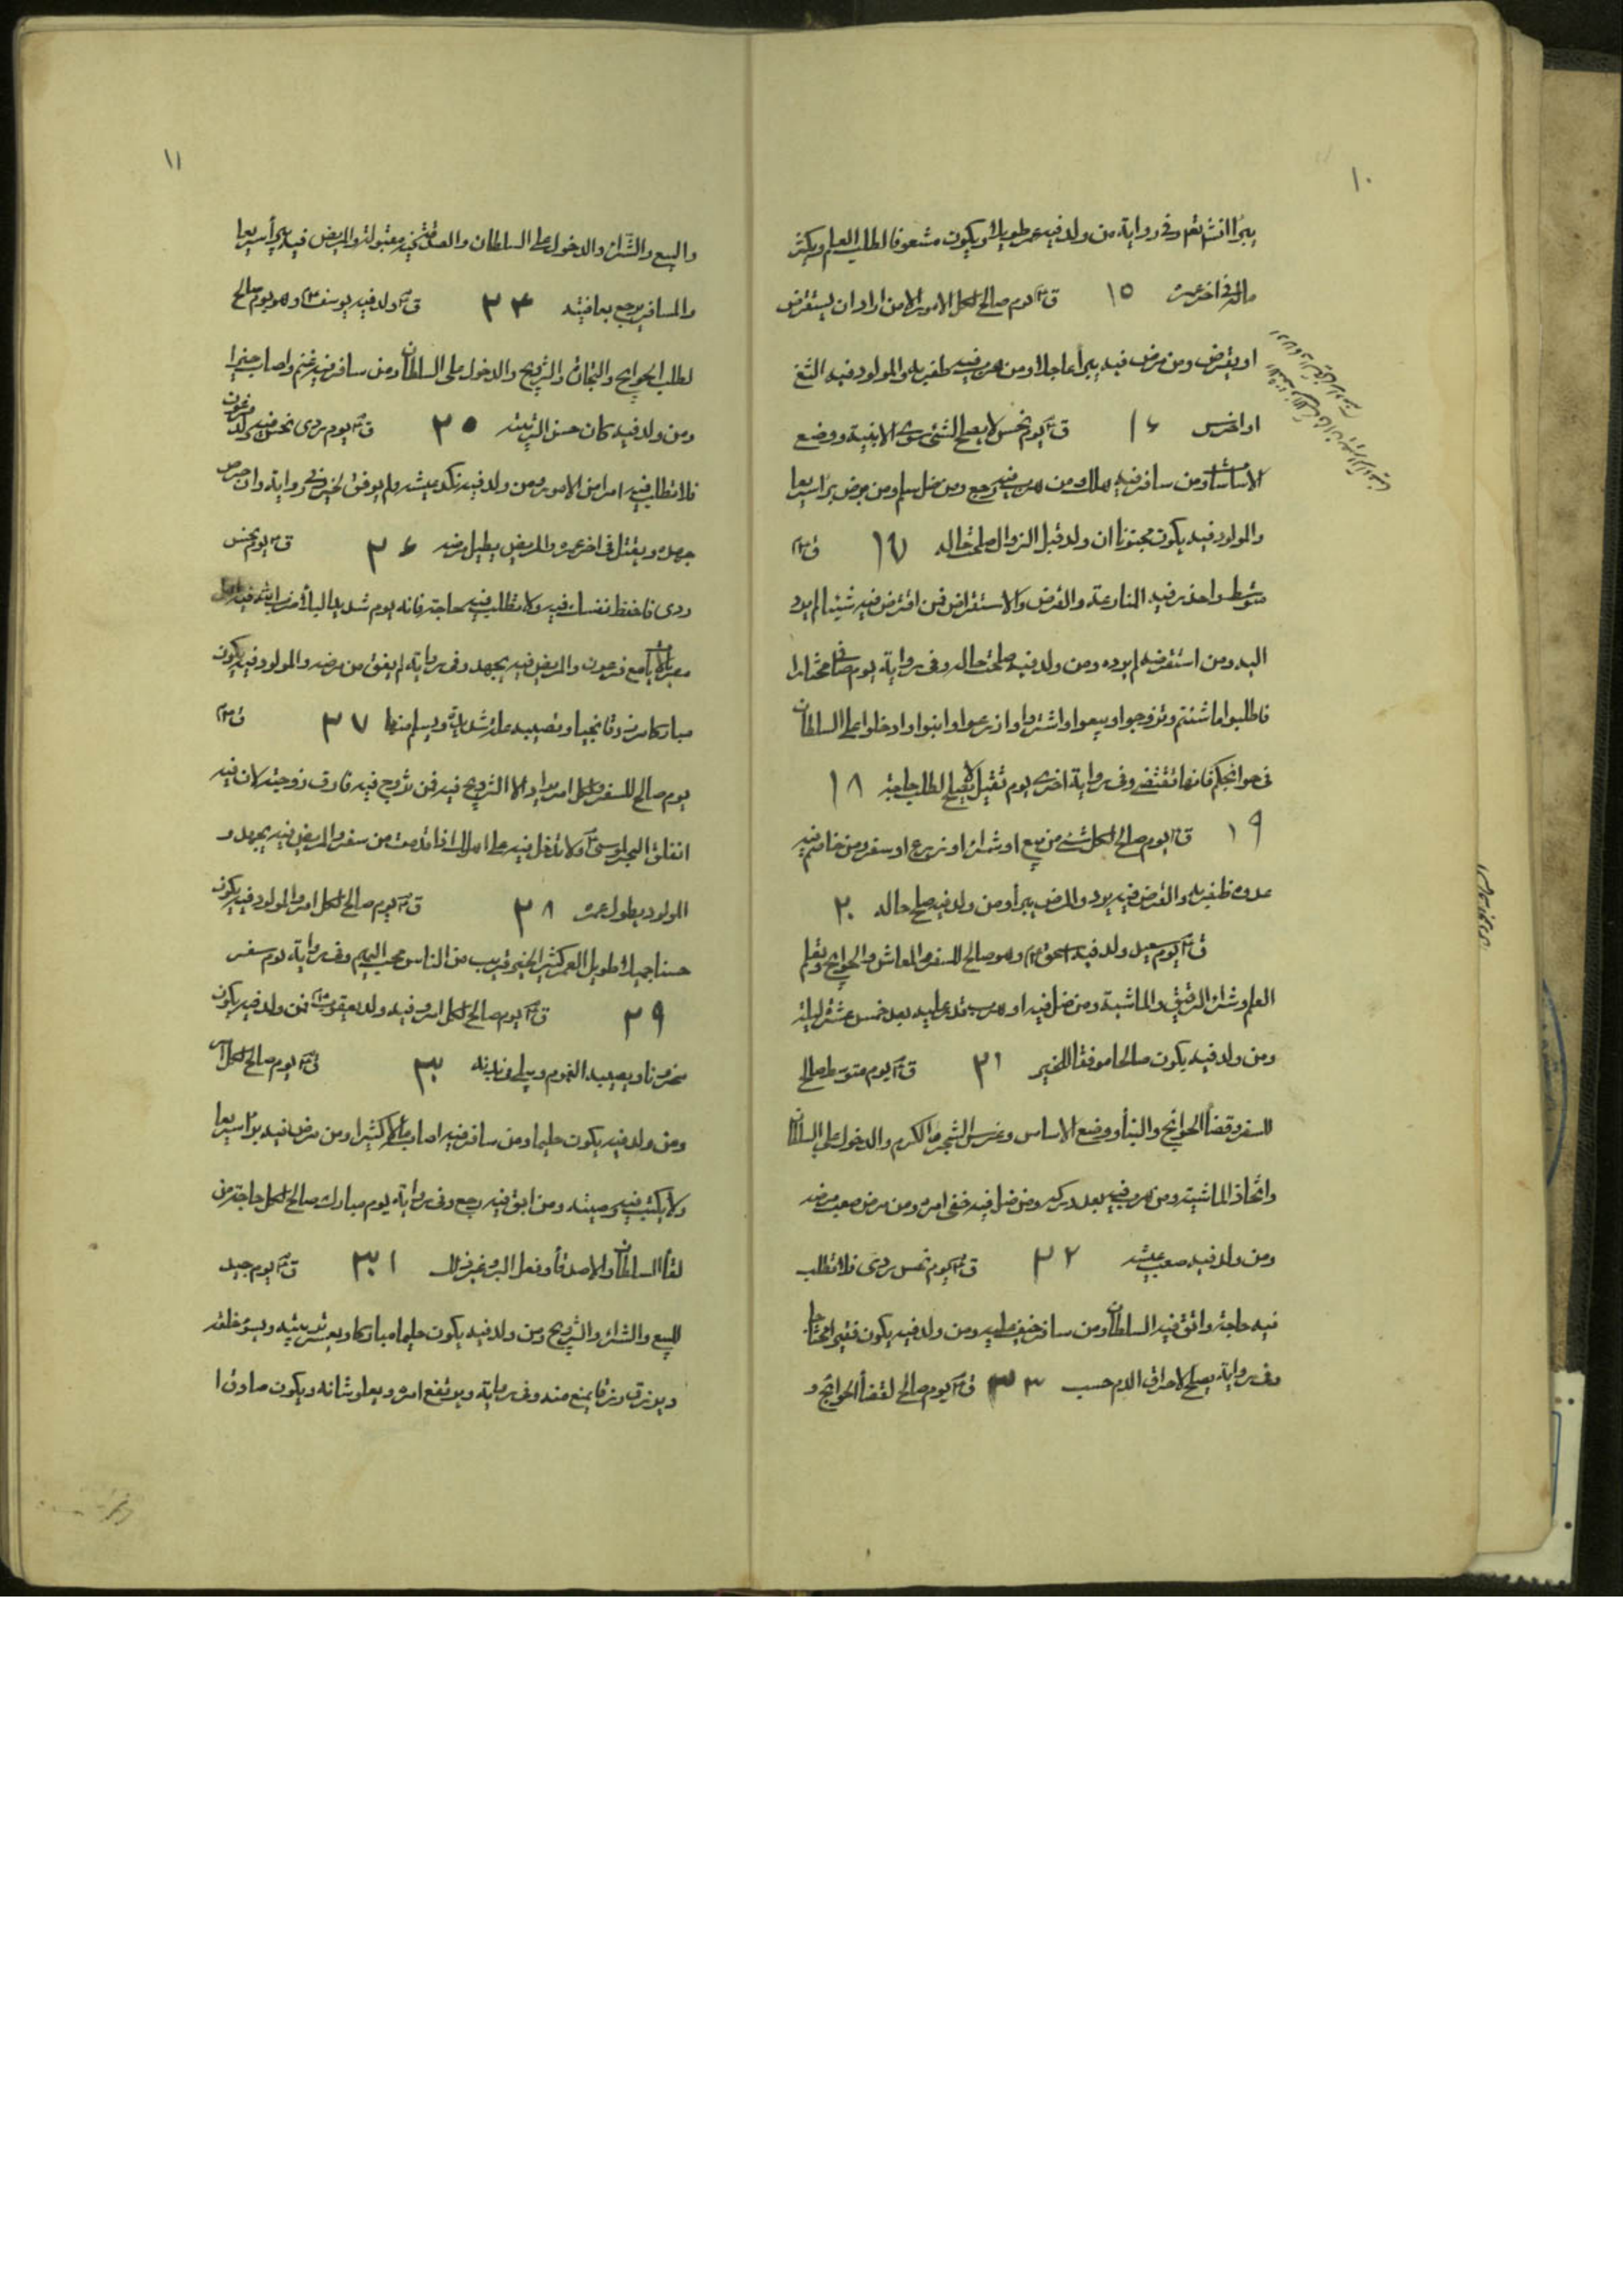 ١٠
يبرأ انشا تعم وفى رواية من ولد فيه عمر طويلا ويكون مشعوفا لطلب العلم ويكثر
ماله فى اخر عمره ١٥ ق ع يوم صالح لكل الامور الا من اراد ان يستقرض
او يقرض ومن مرض فيه يبرأ عاجلا ومن هرب فيه ظفر به والمولود فيه الثغ
او اخرس ١٦ ق ع يوم نحس لا يصلح لشئ سوى الابنية ووضع
الاساسات ومن سافر فيه هلك ومن هرب فيه رجع ومن ضل سلم ومن مرض برأ سريعا
والمولود فيه يكون مجنونا ان ولد قبل الزوال صلحت حاله ١٧ ق ع
متوسط واحذر فيه المنازعة والقرض والاستقراض فمن اقترض فيه شيئا لم يرد
اليه ومن استقرضه لم يرده ومن ولد فيه صلحت حاله وفى رواية يوم صاف مختار
فاطلبوا ما شئتم وتزوجوا وبيعوا واشتروا وازرعوا وابنوا وادخلوا على السلطان
فى حوائجكم فانها تقتضى وفى رواية اخرى يوم ثقيل لا يصلح لطلب حاجة ١٨
ق ع يوم صالح لكل شئ من بيع او شراء او زرع او سفر ومن خاصم فيه ١٩
عدوه ظفر به والقرض فيه يرد والمريض يبرأ ومن ولد فيه صلح حاله ٢٠
ق ع يوم سعيد ولد فيه اسحق ع وهو صالح للسفر والمعاش والحوائج وتعلم
العلم وشراء الرقيق والماشية ومن ضل فيه او هرب قدر عليه بعد خمس عشرة ليلة
ومن ولد فيه يكون صالحا موفقا للخير ٢١ ق ع يوم متوسط صالح
للسفر وقضاء الحوائج والبناء ووضع الاساس وغرس الشجر والكرم والدخول على السلطان
واتخاذ الماشية ومن هرب فيه بعد دركه ومن ضل فيه خفى امره ومن مرض صعب مرضه
ومن ولد فيه صعب عيشه ٢٢ ق ع يوم نحس ردى فلا تطلب
فيه حاجة واتق فيه السلطان ومن سافر خيف عليه ومن ولد فيه يكون فقيرا محتاجا
وفى رواية يصلح لاحراق الدم حسب ٢٣ ق ع يوم صالح لقضاء الحوائج و
١١
والبيع والشراء والدخول على السلطان والصدقة فيه مقبولة والمريض فيه يبرأ سريعا
والمسافر يرجع بعافيته ٢٤ ق ع ولد فيه يوسف ع وهو يوم صالح
لطلب الحوائج والتجارة والتزويج والدخول على السلطان ومن سافر فيه غنم واصاب خيرا
ومن ولد فيه كان حسن التربية ٢٥ ق ع يوم ردى نحس فيه ولد فرعون
فلا تطلب فيه امرا من الامور ومن ولد فيه نكد عيشه ولم يوفق لخير وفى رواية وان حرص
جهده ويقتل فى اخر عمره والمريض يطيل مرضه ٢٦ ق ع يوم نحس
ردى فاحفظ نفسك فيه ولا تطلب فيه حاجة فانه يوم شديد البلاء ضرب الله فيه اهل
مصر بالايات مع فرعون والمريض فيه يجهد وفى رواية لم يفق من مرضه والمولود فيه يكون
مباركا مرزوقا نجيبا وتصيبه علة شديدة ويسلم منها ٢٧ ق ع
يوم صالح للسفر ولكل امر يراد الا التزويج فيه فمن تزوج فيه فارق زوجته لان فيه
انفلق البحر لموسى ع ولا تدخل فيه على اهلك اذا قدمت من سفر والمريض فيه يجهد و
المولود يطول عمره ٢٨ ق ع يوم صالح لكل امر والمولود فيه يكون
حسنا جميلا طويل العمر كثير الخير قريب من الناس محبب اليهم وفى رواية يوم سفر
٢٩ ق ع يوم صالح لكل امر وفيه ولد يعقوب ع فمن ولد فيه يكون
محزونا ويصيبه الغموم ويبلى فى بدنه ٣٠ ق ع يوم صالح لكل امر
ومن ولد فيه يكون حليما ومن سافر فيه اصاب مالا كثيرا ومن مرض فيه برأ سريعا
ولا يكتب فيه وصيته ومن ابق فيه رجع وفى رواية يوم مبارك صالح لكل حاجة من
لقاء السلطان والاصدقاء وفعل البر وغير ذلك ٣٠١ ق ع يوم جيد
للبيع والشراء والتزويج ومن ولد فيه يكون حليما مباركا ويعسر تربيته ويسوء خلقه
ويرزق رزقا يمنع منه وفى رواية ويرتفع امره ويعلو شانه ويكون صادقا